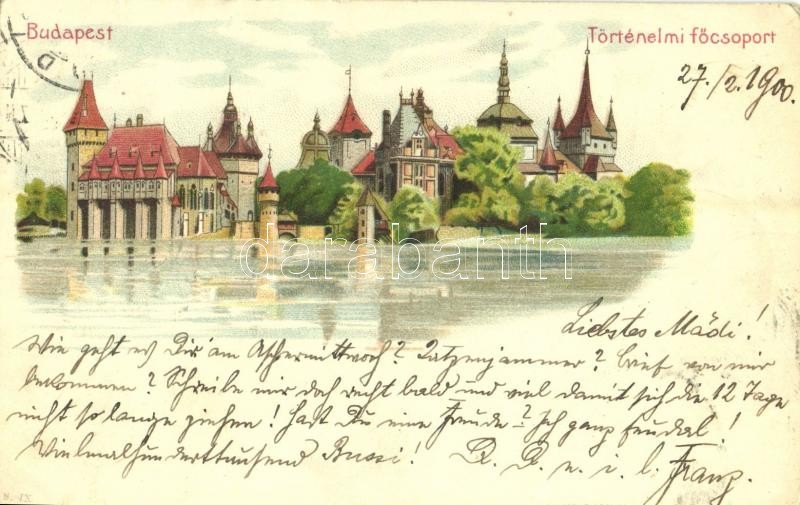 Budapest
Történelmi főcsoport
27./2. 1900.
darabanth
Liebstes Mädi!
Wie geht es Dir am Aschermittwoch? Katzenjammer? Brief von mir
bekommen? Schreibe mir doch recht bald und viel damit sich die 12 Tage
nicht so lange ziehen! Hast Du eine Freude? Ich ganz feudal!
Vielmalhunderttausend Bussi! D. D. u. i. l. Franz.